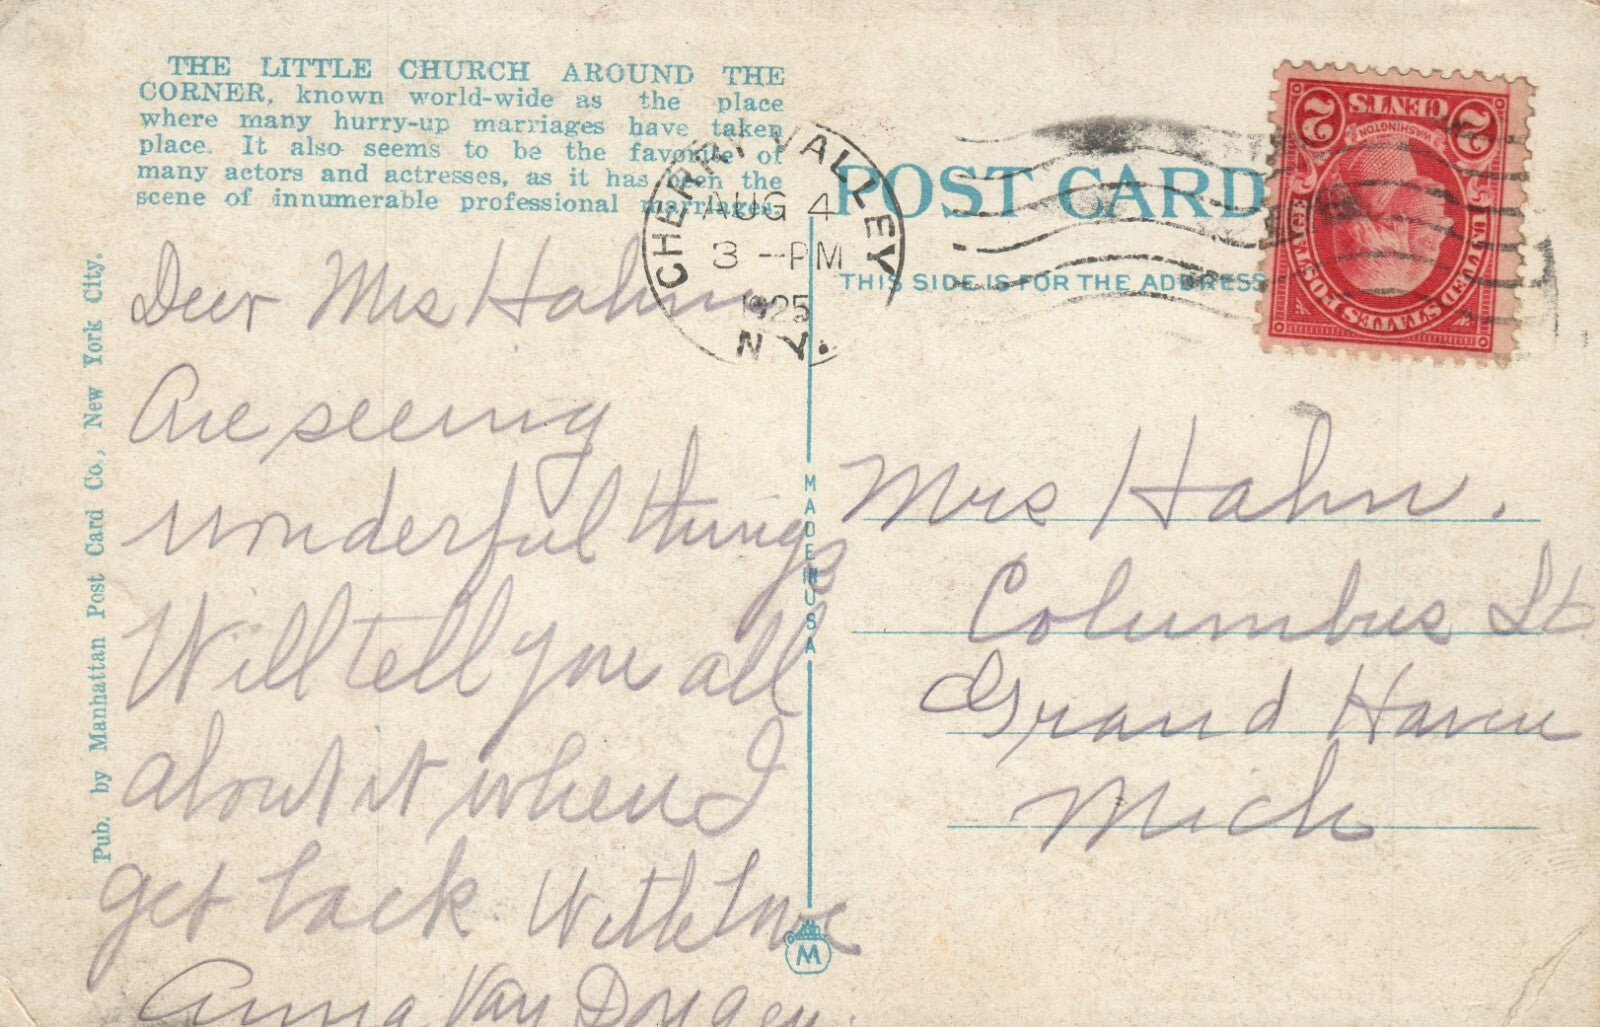 THE LITTLE CHURCH AROUND THE
CORNER, known world-wide as the place
where many hurry-up marriages have taken
place. It also seems to be the favorite of
many actors and actresses, as it has been the
scene of innumerable professional marriages.
Pub. by Manhattan Post Card Co., New York City.
CHERRY VALLEY
AUG 4
3 --PM
1925
N.Y.
POST CARD
THIS SIDE IS FOR THE ADDRESS
2 CENTS 2
WASHINGTON
UNITED STATES POSTAGE
Dear Mrs Hahn
Are seeing
wonderful things
Will tell you all
about it when I
get back With Love
Anna Van Dongen.
MADE IN USA
M
Mrs Hahn.
Columbus St
Grand Haven
Mich